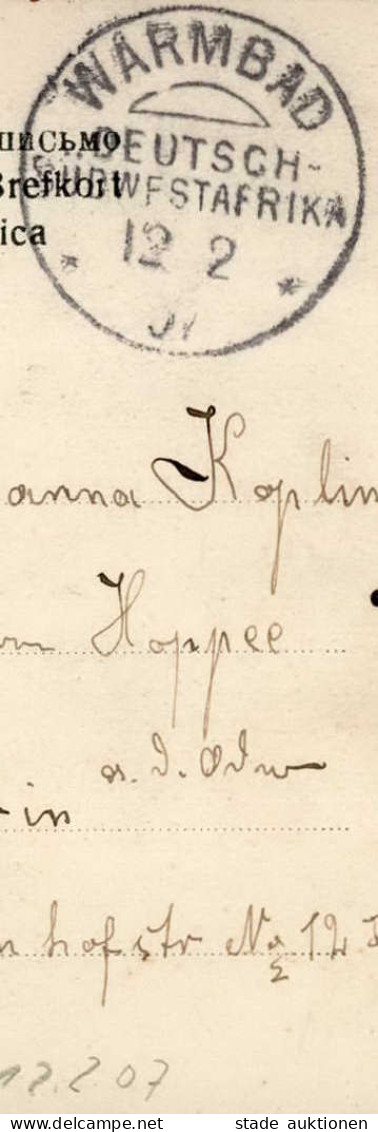 WARMBAD
DEUTSCH-
SÜDWESTAFRIKA
12 2
07
письмо
Brefkort
ica
anna Koplin
Hoppee
a. d. Oder
in
hofstr No 12
12.2.07
www.delcampe.net stade auktionen